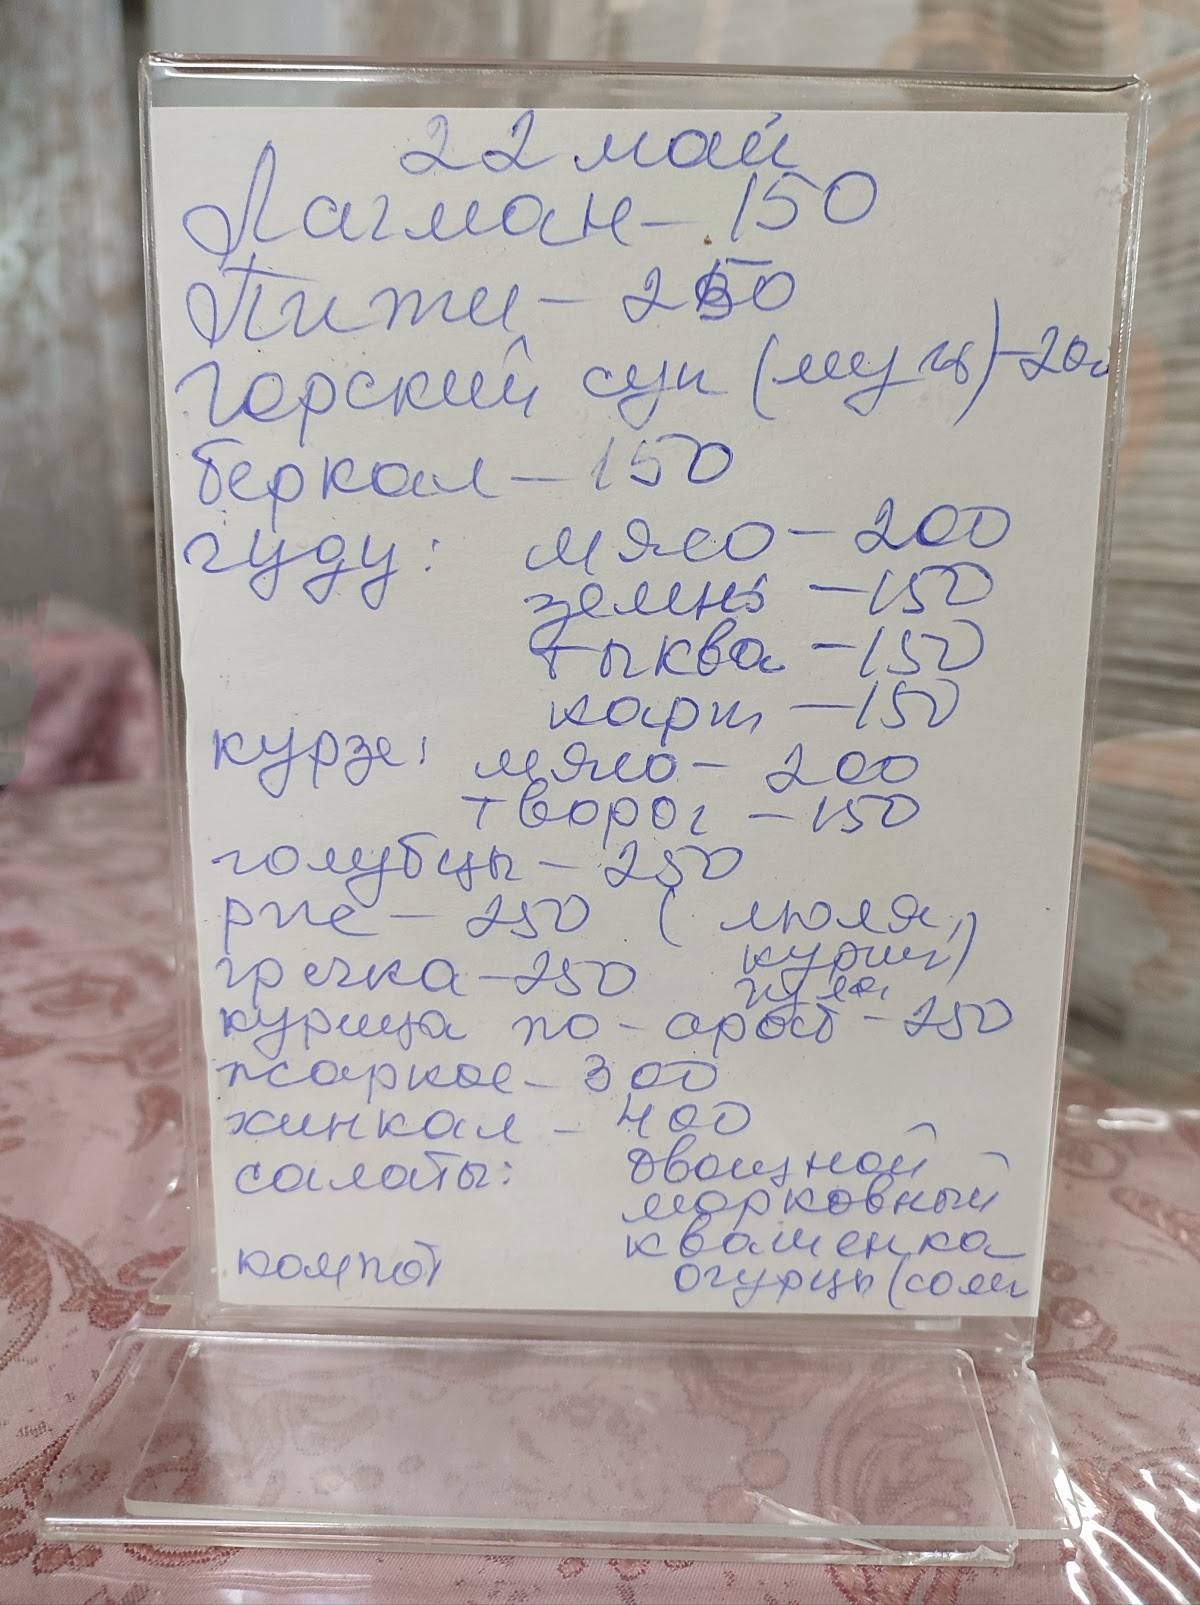 22 май
Лагман - 150
Пити - 250
Горский суп (мугь) - 200
беркал - 150
гуду: мясо - 200
зелень - 150
тыква - 150
карт - 150
курзе: мясо - 200
творог - 150
голубцы - 250
рис - 250 ( люля,
гречка - 250 куриц)
гуляш
курица по-арабс - 250
жаркое - 300
хинкал - 400
салаты: овощной
морковный
квашенка
компот огурцы (солен